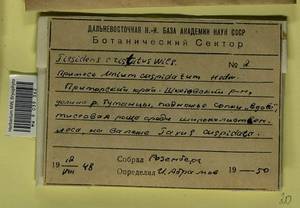 ДАЛЬНЕВОСТОЧНАЯ Н.-И. БАЗА АКАДЕМИИ НАУК СССР
Ботанический Сектор
Fissidens cristatus Wils.
№ 2
Примесь Mnium cuspidatum Hedw.
Приморский край Шкотовский р-н,
долина р. , подножье сопки,
тисовая роща среди широколиствен.
леса на валеже Taxus cuspidata.
12 VIII 1948
Собрал Розенберг
Определил И. Абрамов 1950